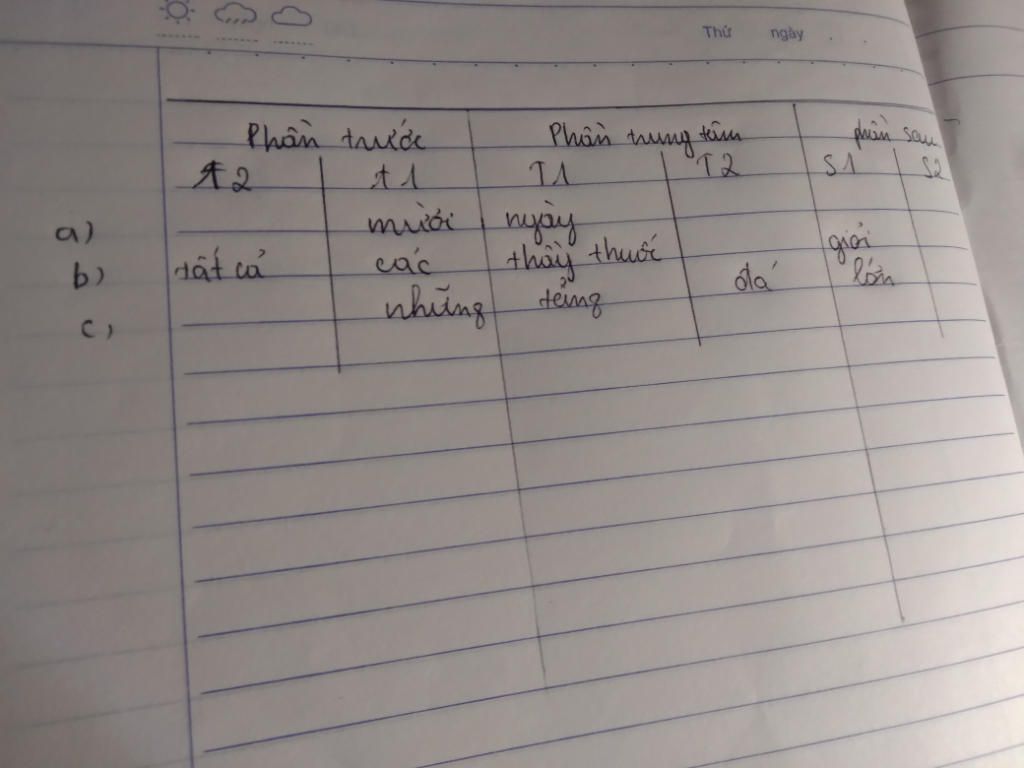 Thứ ngày
Phần trước Phần trung tâm phần sau
t2 t1 T1 T2 S1 S2
a) mười ngày
b) tất cả các thầy thuốc giỏi
c) những tảng đá lớn